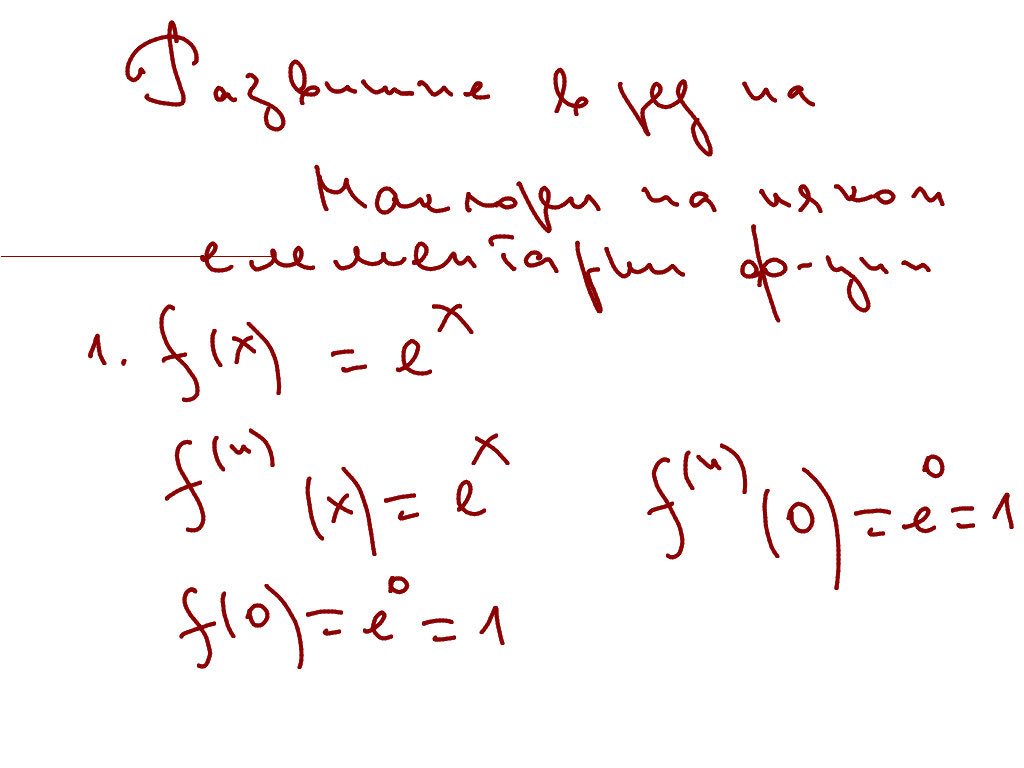 Развитие в ред на
Маклорен на някои
елементарни ф-ции
1. f(x) = e^x
f^(n)(x) = e^x f^(n)(0) = e^0 = 1
f(0) = e^0 = 1